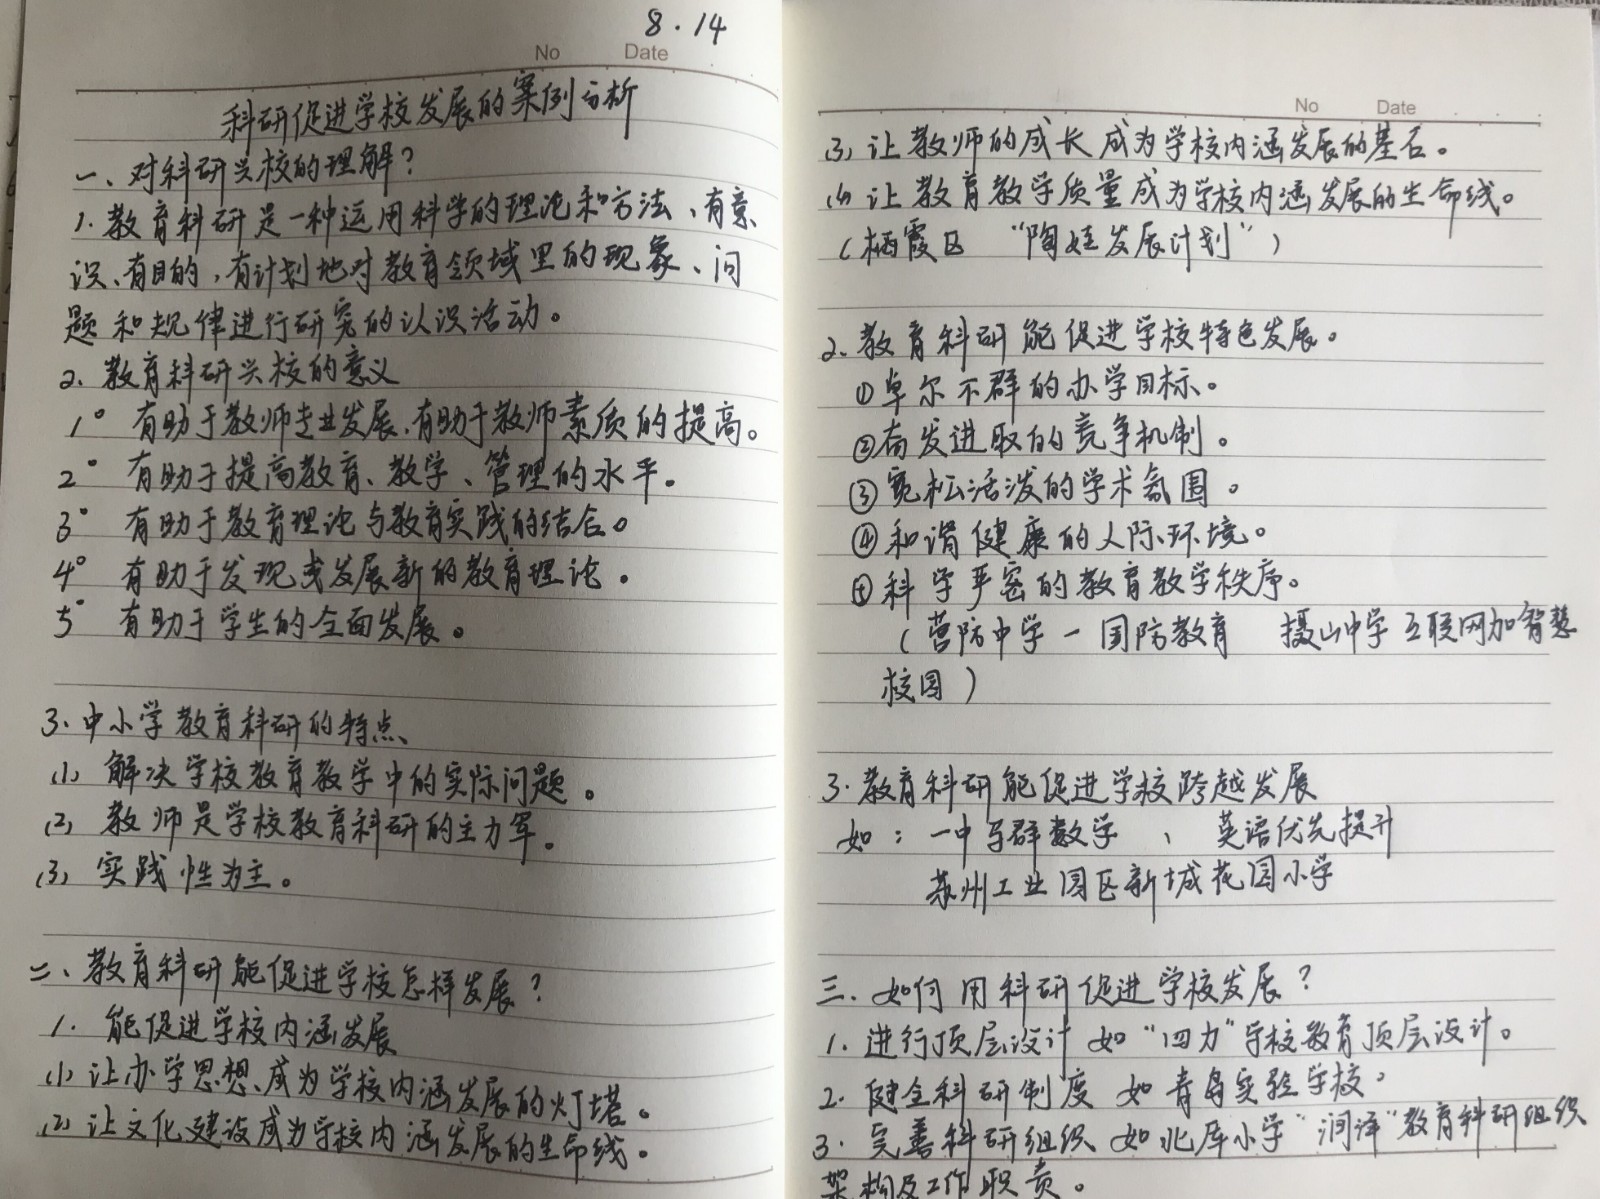 8.14
No Date
科研促进学校发展的案例分析
一、对科研兴校的理解？
1.教育科研是一种运用科学的理论和方法、有意
识、有目的，有计划地对教育领域里的现象、问
题和规律进行研究的认识活动。
2.教育科研兴校的意义
1° 有助于教师专业发展.有助于教师素质的提高。
2° 有助于提高教育、教学、管理的水平。
3° 有助于教育理论与教育实践的结合。
4° 有助于发现或发展新的教育理论。
5° 有助于学生的全面发展。
3.中小学教育科研的特点、
(1) 解决学校教育教学中的实际问题。
(2) 教师是学校教育科研的主力军。
(3) 实践性为主。
二、教育科研能促进学校怎样发展？
1. 能促进学校内涵发展
(1) 让办学思想、成为学校内涵发展的灯塔。
(2) 让文化建设成为学校内涵发展的生命线。
No Date
(3) 让教师的成长成为学校内涵发展的基石。
(4) 让教育教学质量成为学校内涵发展的生命线。
（栖霞区 “陶娃发展计划”）
2.教育科研能促进学校特色发展。
①卓尔不群的办学目标。
②奋发进取的竞争机制。
③宽松活泼的学术氛围。
④和谐健康的人际环境。
⑤科学严密的教育教学秩序。
（营防中学－国防教育 摄山中学互联网加智慧
校园）
3.教育科研能促进学校跨越发展
如：一中 数学 、 英语优先提升
苏州工业园区新城花园小学
三.如何用科研促进学校发展？
1.进行顶层设计 如“四力”学校教育顶层设计。
2.健全科研制度 如青岛实验学校。
3.完善科研组织 如北厍小学“润泽”教育科研组织
架构及工作职责。